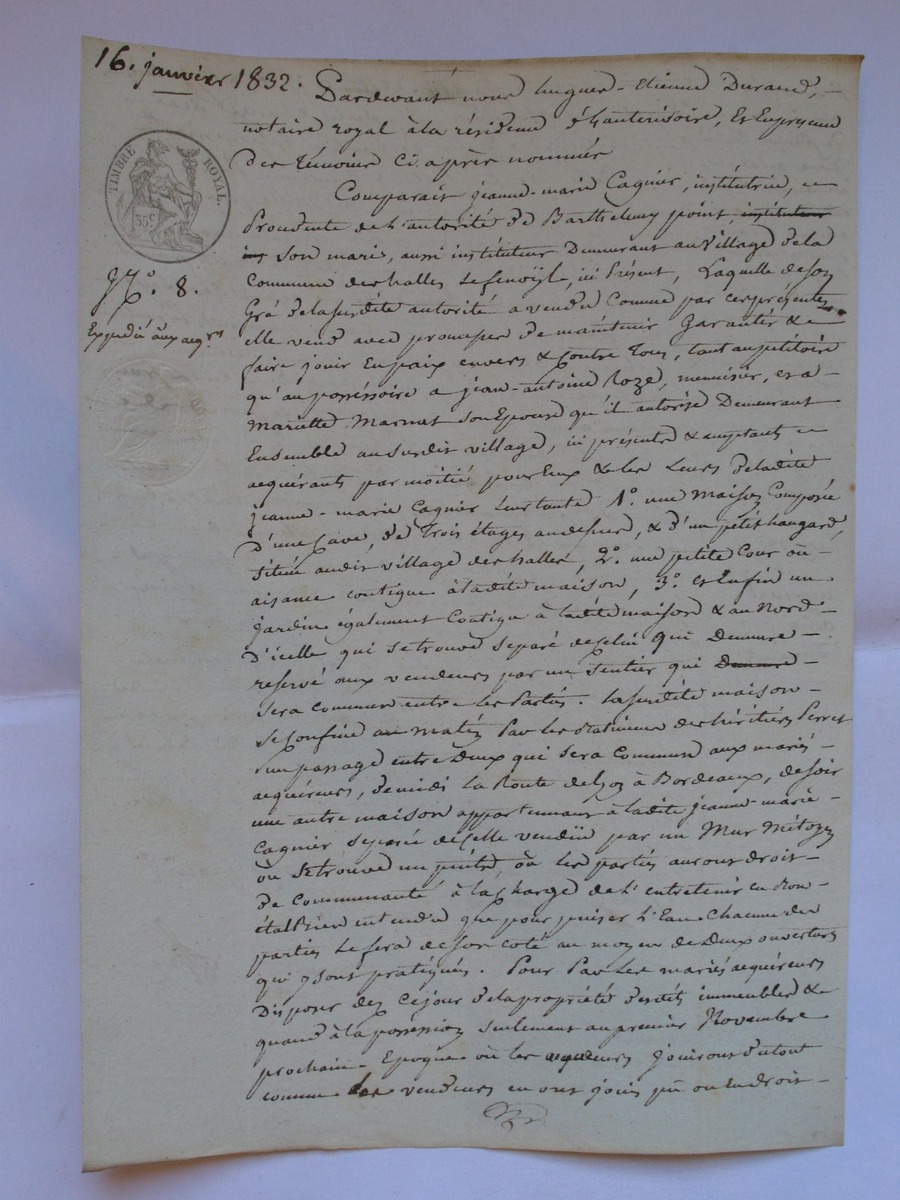 16. janvier 1832.
Pardevant nous hugues-Etienne Durand,
notaire royal à la résidence d'hauterivoire, Et En présence
des témoins Ci après nommés
TIMBRE ROYAL.
35c
Comparaît jeanne-marie Cagnier, institutrice, ce
Procédente de l'autorité de Barthelemy point, instituteur
son mari, aussi instituteur Demeurant au Village de la
N.º 8.
Commune des halles Le fenoÿl, ici Présent, Laquelle de son
Gré de la susdite autorité a vendu Comme par ces présentes
Expédié aux acq.rs
elle vend avec promesse de maintenir Garantir &
faire jouir En paix envers & Contre Tous, tant au pétitoire
qu'au possessoire a jean-antoine Roze, menuisier, et a
Mariette Marnat son Epouse qu'il autorise Demeurant
Ensemble au susdit village, ici présents & acceptants
acquérants par moitié pour Eux & les Leurs de ladite
jeanne-marie Cagnier Leur tante 1.º une Maison Composée
d'une Cave, de Trois étages au dessus, & d'un petit hangard,
située audit village des halles, 2.º une petite Cour ou
aisance contigue à ladite maison, 3.º et Enfin un
jardin également Contigu à ladite maison & au Nord
d'icelle qui se trouve séparé de celui qui Demeure
reservé aux vendeurs par un Sentier qui Demeure
sera Commun entre les Parties. La susdite maison
se Confine au matin Par les des héritiers Perret
un passage entre deux qui sera Commun aux mariés
acquéreurs, de midi La Route de Lyon à Bordeaux, de soir
une autre maison appartenant à ladite jeanne-marie
Cagnier séparée de Celle vendue par un Mur Mitoyen
où se trouve un puits, où les parties auront droit
de Communauté à la charge de l'entretenir en Bon
état Bien entendu que pour puiser l'Eau Chacune des
parties Le fera de son coté au moyen de Deux ouvertures
qui y sont pratiquées. Pour Par les mariés acquéreurs
Disposer dez Cejour de la propriété desdits immeubles &
quand à la possession seulement au premier Novembre
prochain Epoque où les acquéreurs jouiront du tout
comme les vendeurs en ont joui pû ou En droit